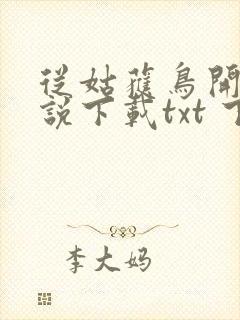 從姑蘿鳥開
說下載txt 下
李大妈